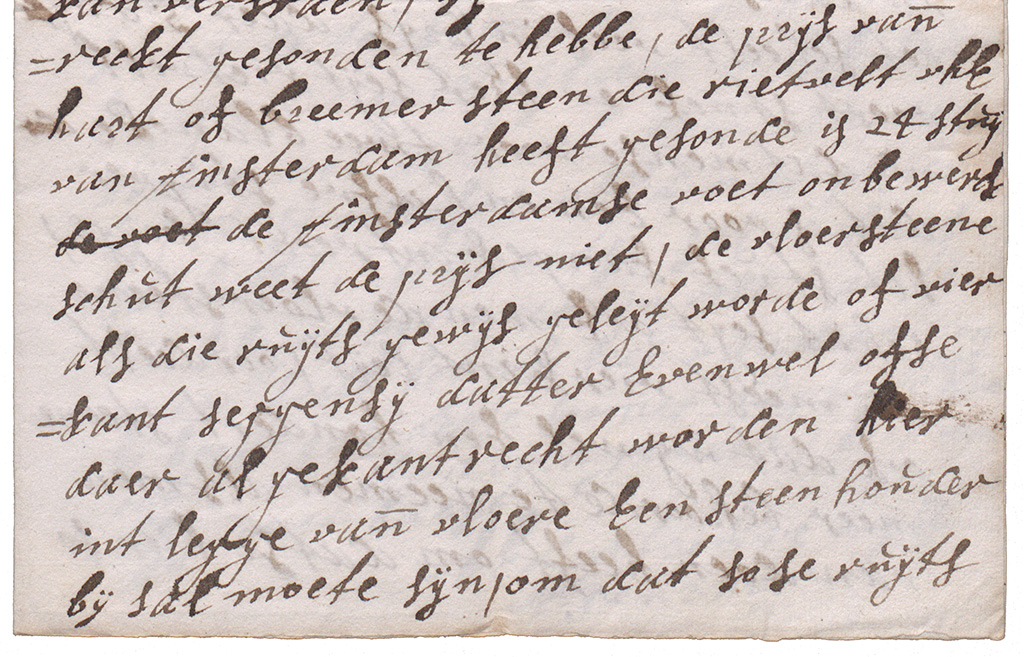 kan verstaen, is
=reckt gesonden te hebbe, de prijs van̄
hart of breemer steen die rietvelt uhE
van Amsterdam heeft gesonde is 24 stuy
de voet de Amsterdamse voet onbewerk
schut weet de prijs niet, de vloersteene
als die ruyts gewijs geleyt worde of vier
=kant seggensy datter Evenwel ofse
daer al gekantrecht worden hier
int legge van̄ vloere Een steenhouder
by sal moete syn, om dat so se ruyts